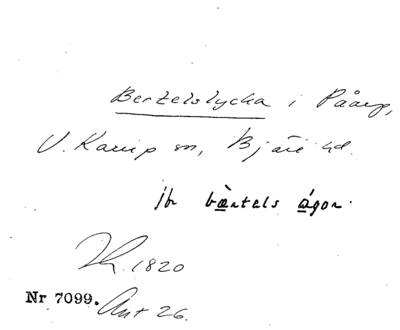 Bertelslycka i Påarp,
V. Karup sn, Bjäre hd.
jfr bærtels ågor.
Lh. 1820
Nr 7099. Ant 26.